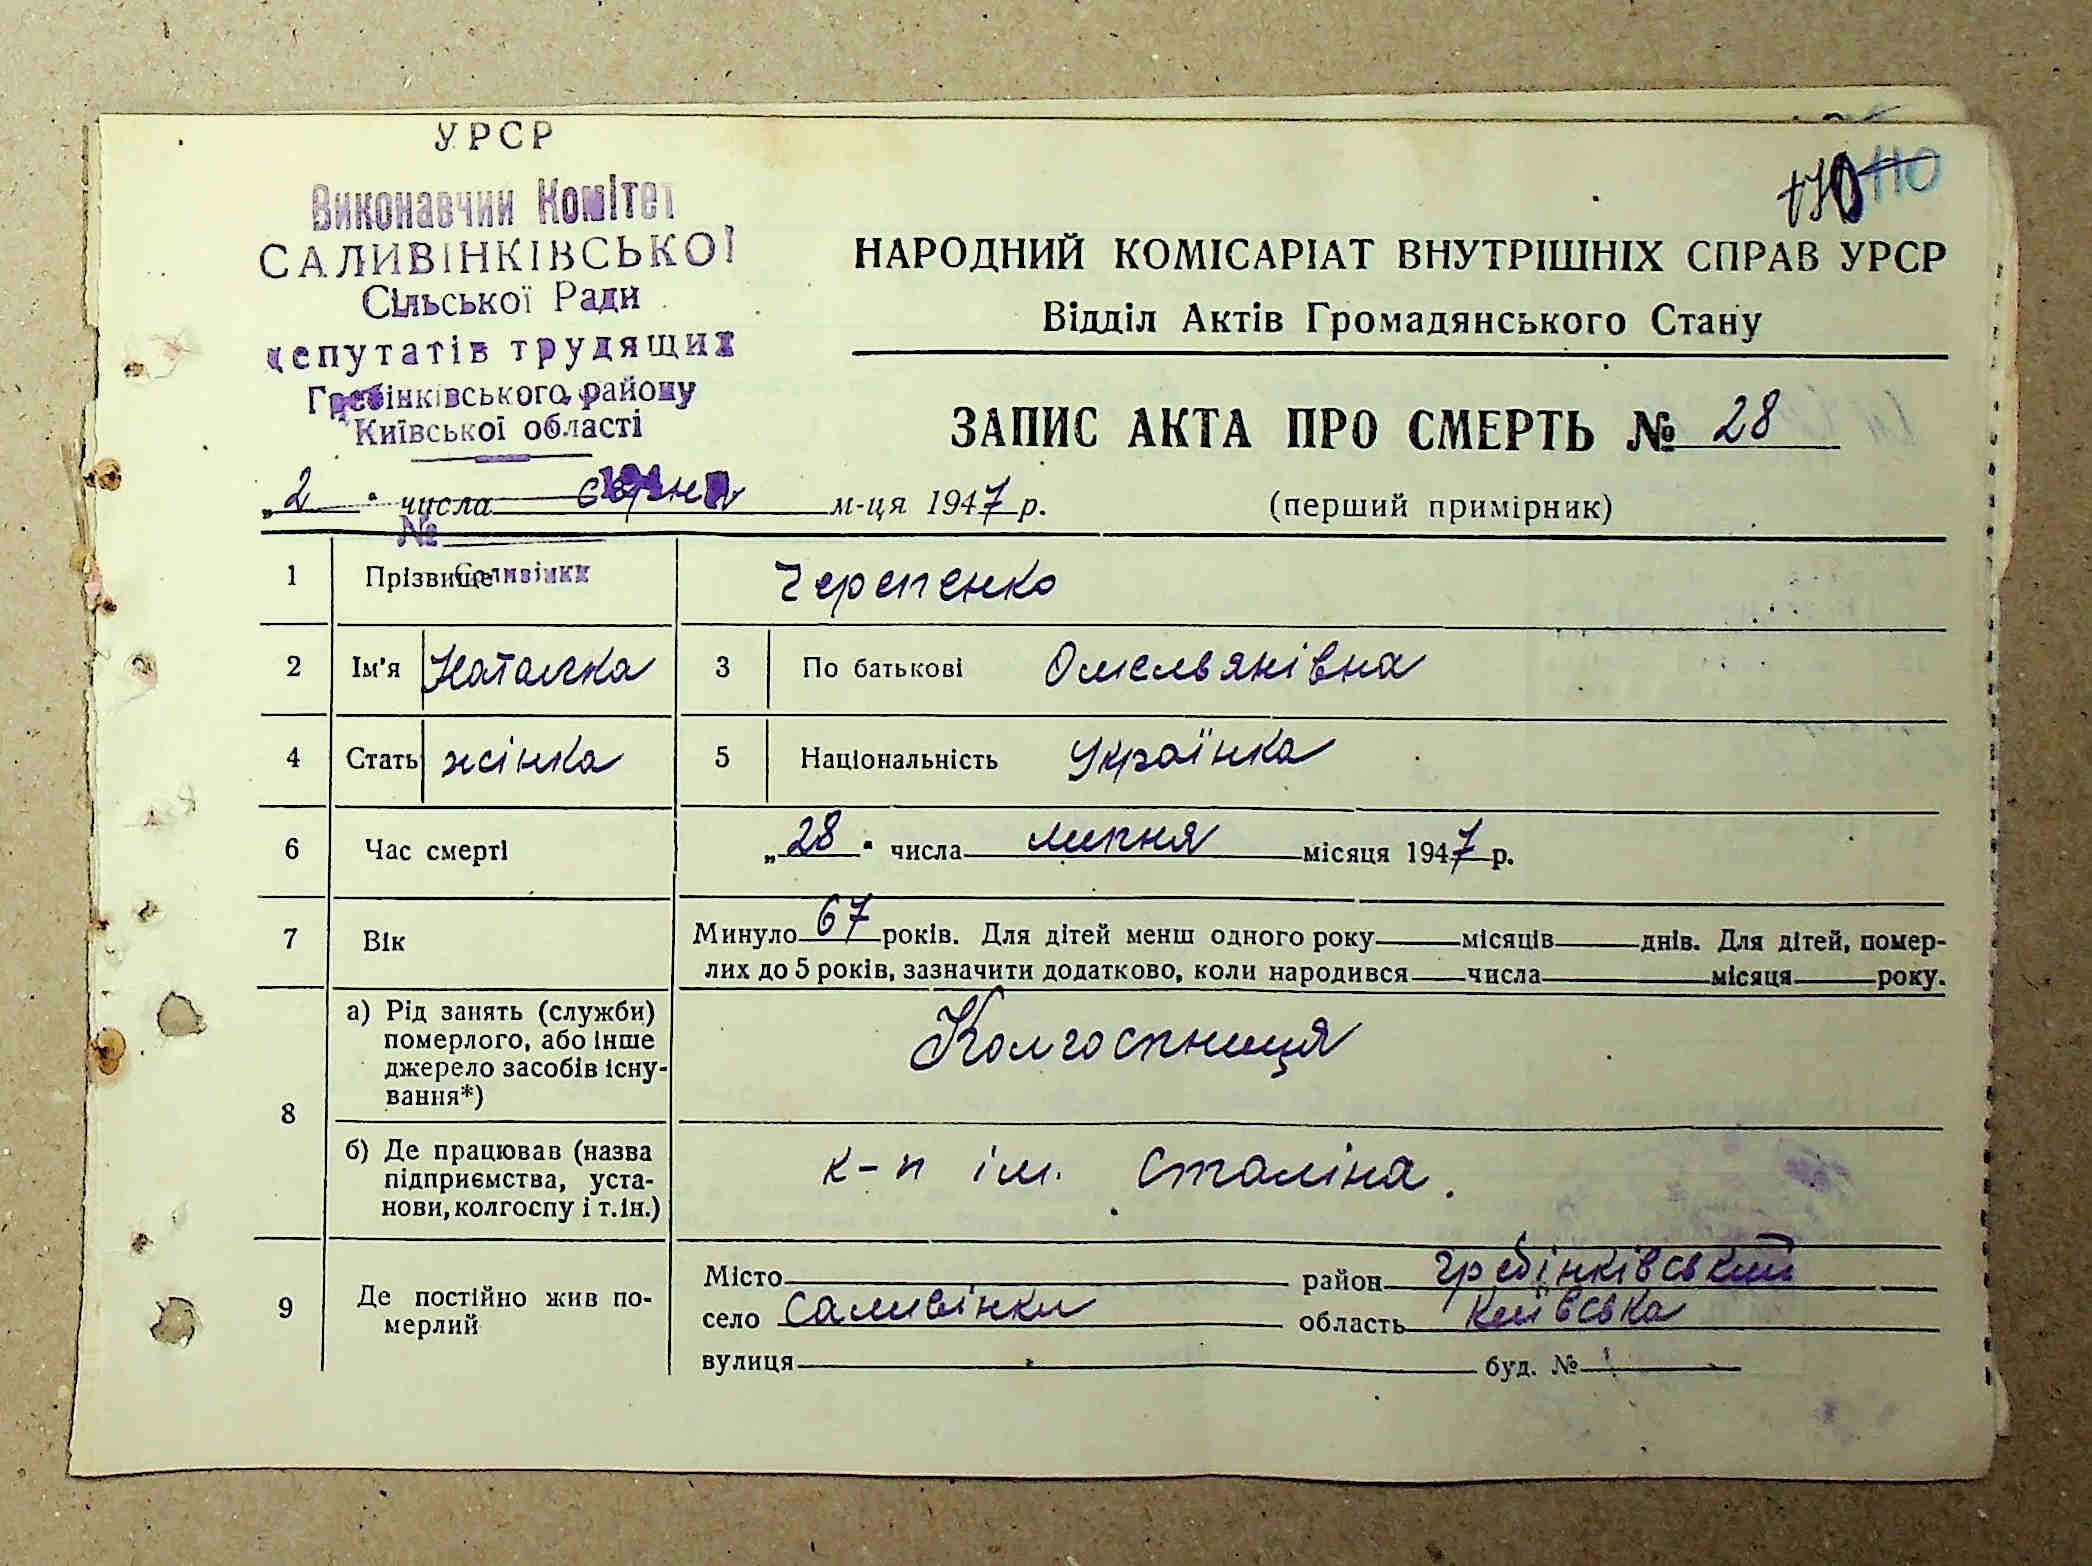 УРСР
Виконавчий Комітет
САЛИВІНКІВСЬКОЇ
Сільської Ради
депутатів трудящих
Гребінківського району
Київської області
110
НАРОДНИЙ КОМІСАРІАТ ВНУТРІШНІХ СПРАВ УРСР
Відділ Актів Громадянського Стану
ЗАПИС АКТА ПРО СМЕРТЬ № 28
„2" числа серпня м-ця 1947 р.
(перший примірник)
№
Саливінки
1 Прізвище Черепенко
2 Ім'я Наталка 3 По батькові Омельянівна
4 Стать жінка 5 Національність Українка
6 Час смерті „28" числа липня місяця 1947 р.
7 Вік Минуло 67 років. Для дітей менш одного року місяців днів. Для дітей, помер-
лих до 5 років, зазначити додатково, коли народився числа місяця року.
8 а) Рід занять (служби)
померлого, або інше
джерело засобів існу-
вання*)
Колгоспниця
б) Де працював (назва
підприємства, уста-
нови, колгоспу і т.ін.)
к-п ім. Сталіна.
9 Де постійно жив по-
мерлий
Місто район Гребінківський
село Саливінки область Київська
вулиця буд. №